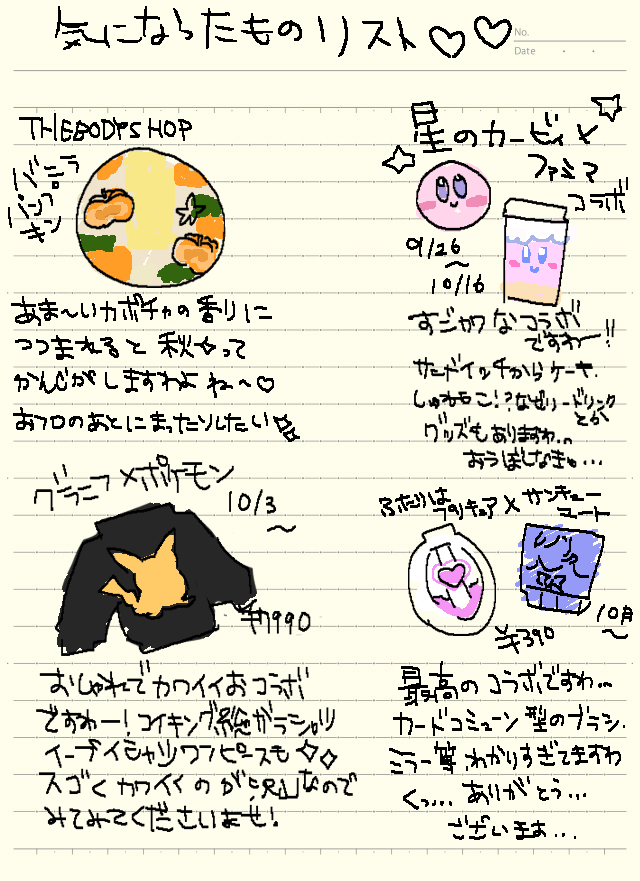 気になったものリスト♡♡
No.
Date
THEBODYSHOP
バニラ
パンプ
キン
あま〜いカボチャの香りに
つつまれると秋✧って
かんじがしますわよね〜♡
おフロのあとにまったりしたい
星のカービィ×
ファミマ
コラボ
9/26
〜
10/16
すごカワなコラボ
ですわー!!
サンドイッチからケーキ.
しゅわもこ!?なゼリードリンク
とか
グッズもありますわ...
おうぼしなきゃ...
グラニフ×ポケモン
10/3
〜
¥7990
おしゃれでカワイイおコラボ
ですわー!コイキング総がらシャツ
イーブイシャツワンピースも✧✧
スゴくカワイイのが沢山なので
みてみてくださいませ!
ふたりはプリキュア×サンキュー
マート
¥390
10月
〜
最高のコラボですわ...
カードコミューン型のブラシ.
ミラー等.わかりすぎてますわ
くっ...ありがとう...
ございます...